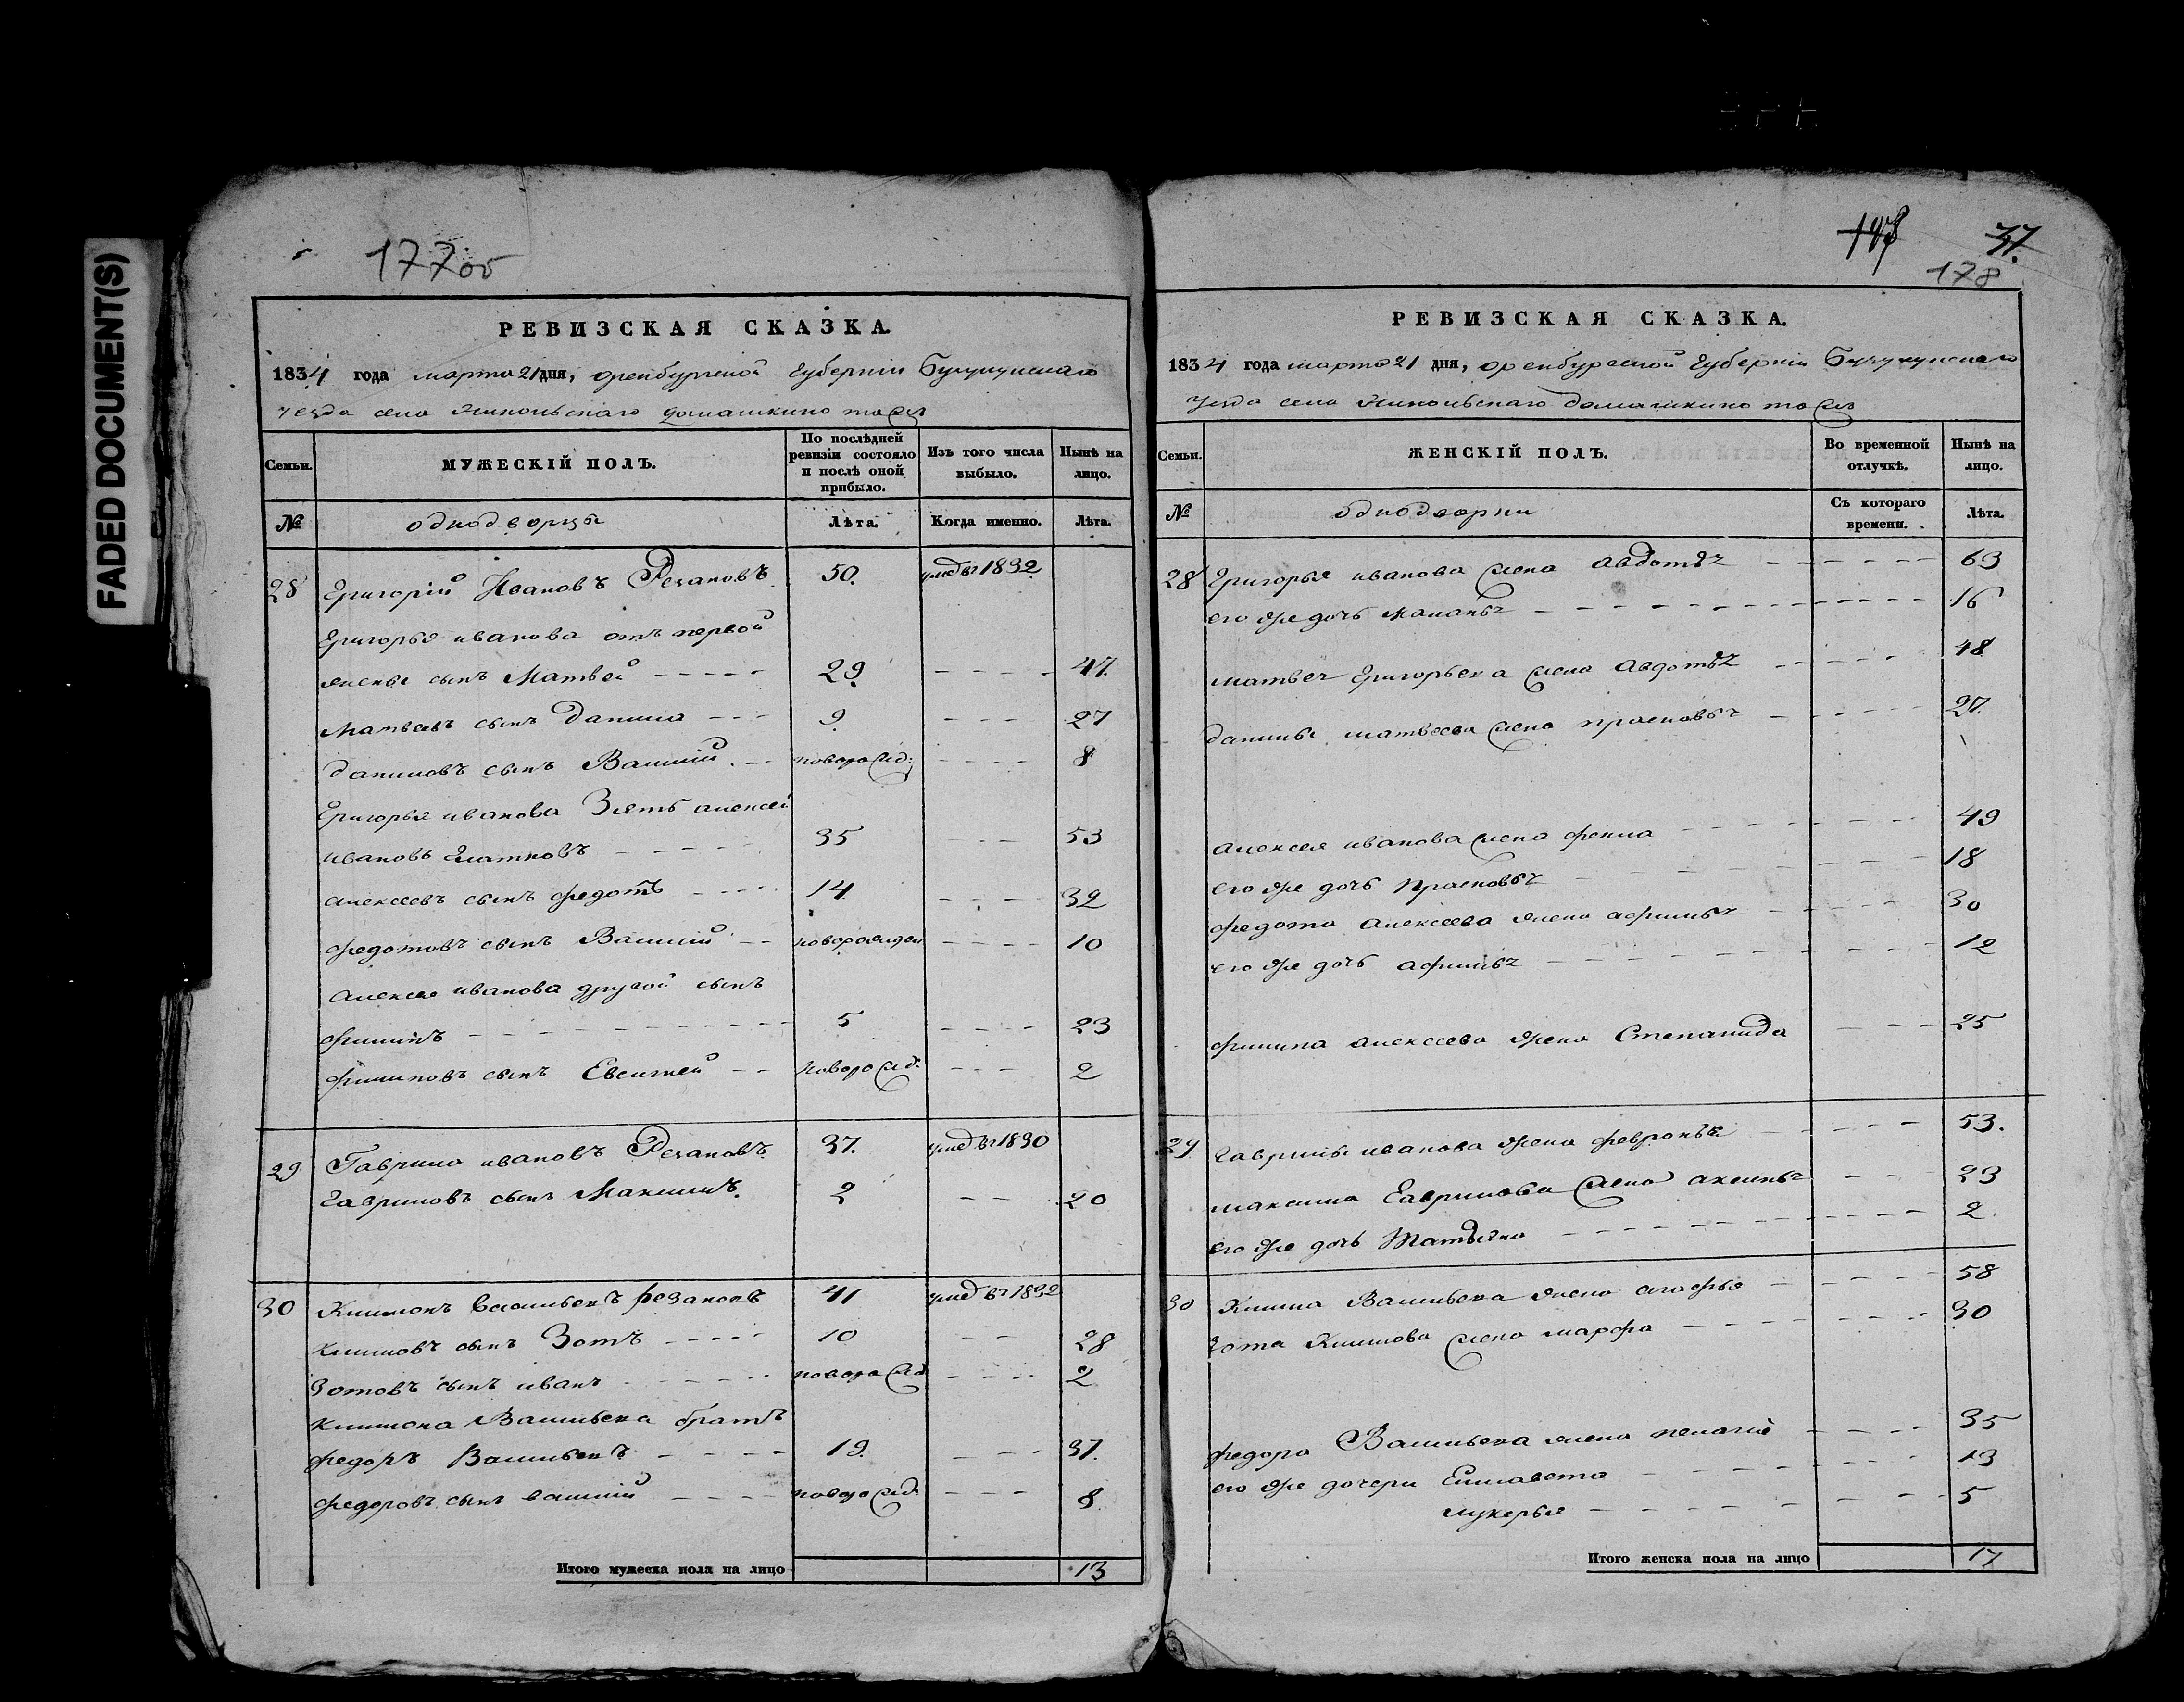 FADED DOCUMENT(S)
177об
РЕВИЗСКАЯ СКАЗКА.
1834 года марта 21 дня, оренбургской губернии Бузулукского
уезда села Никольскаго домашкино то жъ
Семьи.
МУЖЕСКІЙ ПОЛЪ.
По послѣдней ревизіи состояло и послѣ оной прибыло.
Изъ того числа выбыло.
Нынѣ на лицо.
№ однодворцы Лѣта. Когда именно. Лѣта.
28 Григорій Ивановъ Резановъ 50. умед въ 1832
Григорья иванова отъ первой
жены сынъ Матвей 29. 47.
Матвеевъ сынъ Данила 9. 27
Даниловъ сынъ Василий новорожд: 8
Григорья иванова Зять алексей
ивановъ 35 53
алексеевъ сынъ федотъ 14 32
федотовъ сынъ Василий новорожден 10
Алексея иванова другой сынъ
филипъ 5 23
филиповъ сынъ Евсигней новорожд: 2
29 Гаврила ивановъ Резановъ. 37. умед въ 1830
Гавриловъ сынъ Максимъ. 2 20
30 Климонъ Васильевъ резановъ 41 умед въ 1832
климовъ сынъ Зотъ 10 28
Зотовъ сынъ иванъ новорожд 2
климона Васильева братъ
федоръ Васильевъ 19. 37.
федоровъ сынъ василий новорожд: 8
Итого мужеска пола на лицо 13
37.
178
РЕВИЗСКАЯ СКАЗКА.
1834 года марта 21 дня, оренбургской губернии Бузулукского
уезда села Никольскаго домашкино то жъ
Семьи.
ЖЕНСКІЙ ПОЛЪ.
Во временной отлучкѣ.
Нынѣ на лицо.
№ однодворки Съ котораго времени. Лѣта.
28 Григорья иванова жена авдотья 63
его же дочь маланья 16
матвея Григорьева жена авдотья 48
данилы матвеева жена прасковья 27.
алексея иванова жена фекла 49
его же дочь прасковья 18
федота алексеева жена афимья 30
его же дочь афимья 12
филипа алексеева жена Степанида 25
29 Гаврилы иванова жена февронья 53.
максима Гаврилова жена аксинья 23
его же дочь Татьяна 2
30 Клима Васильева жена агафья 58
Зота Климова жена марфа 30
федора Васильева жена пелагея 35
его же дочери Елисавета 13
лукерья 5
Итого женска пола на лицо 17